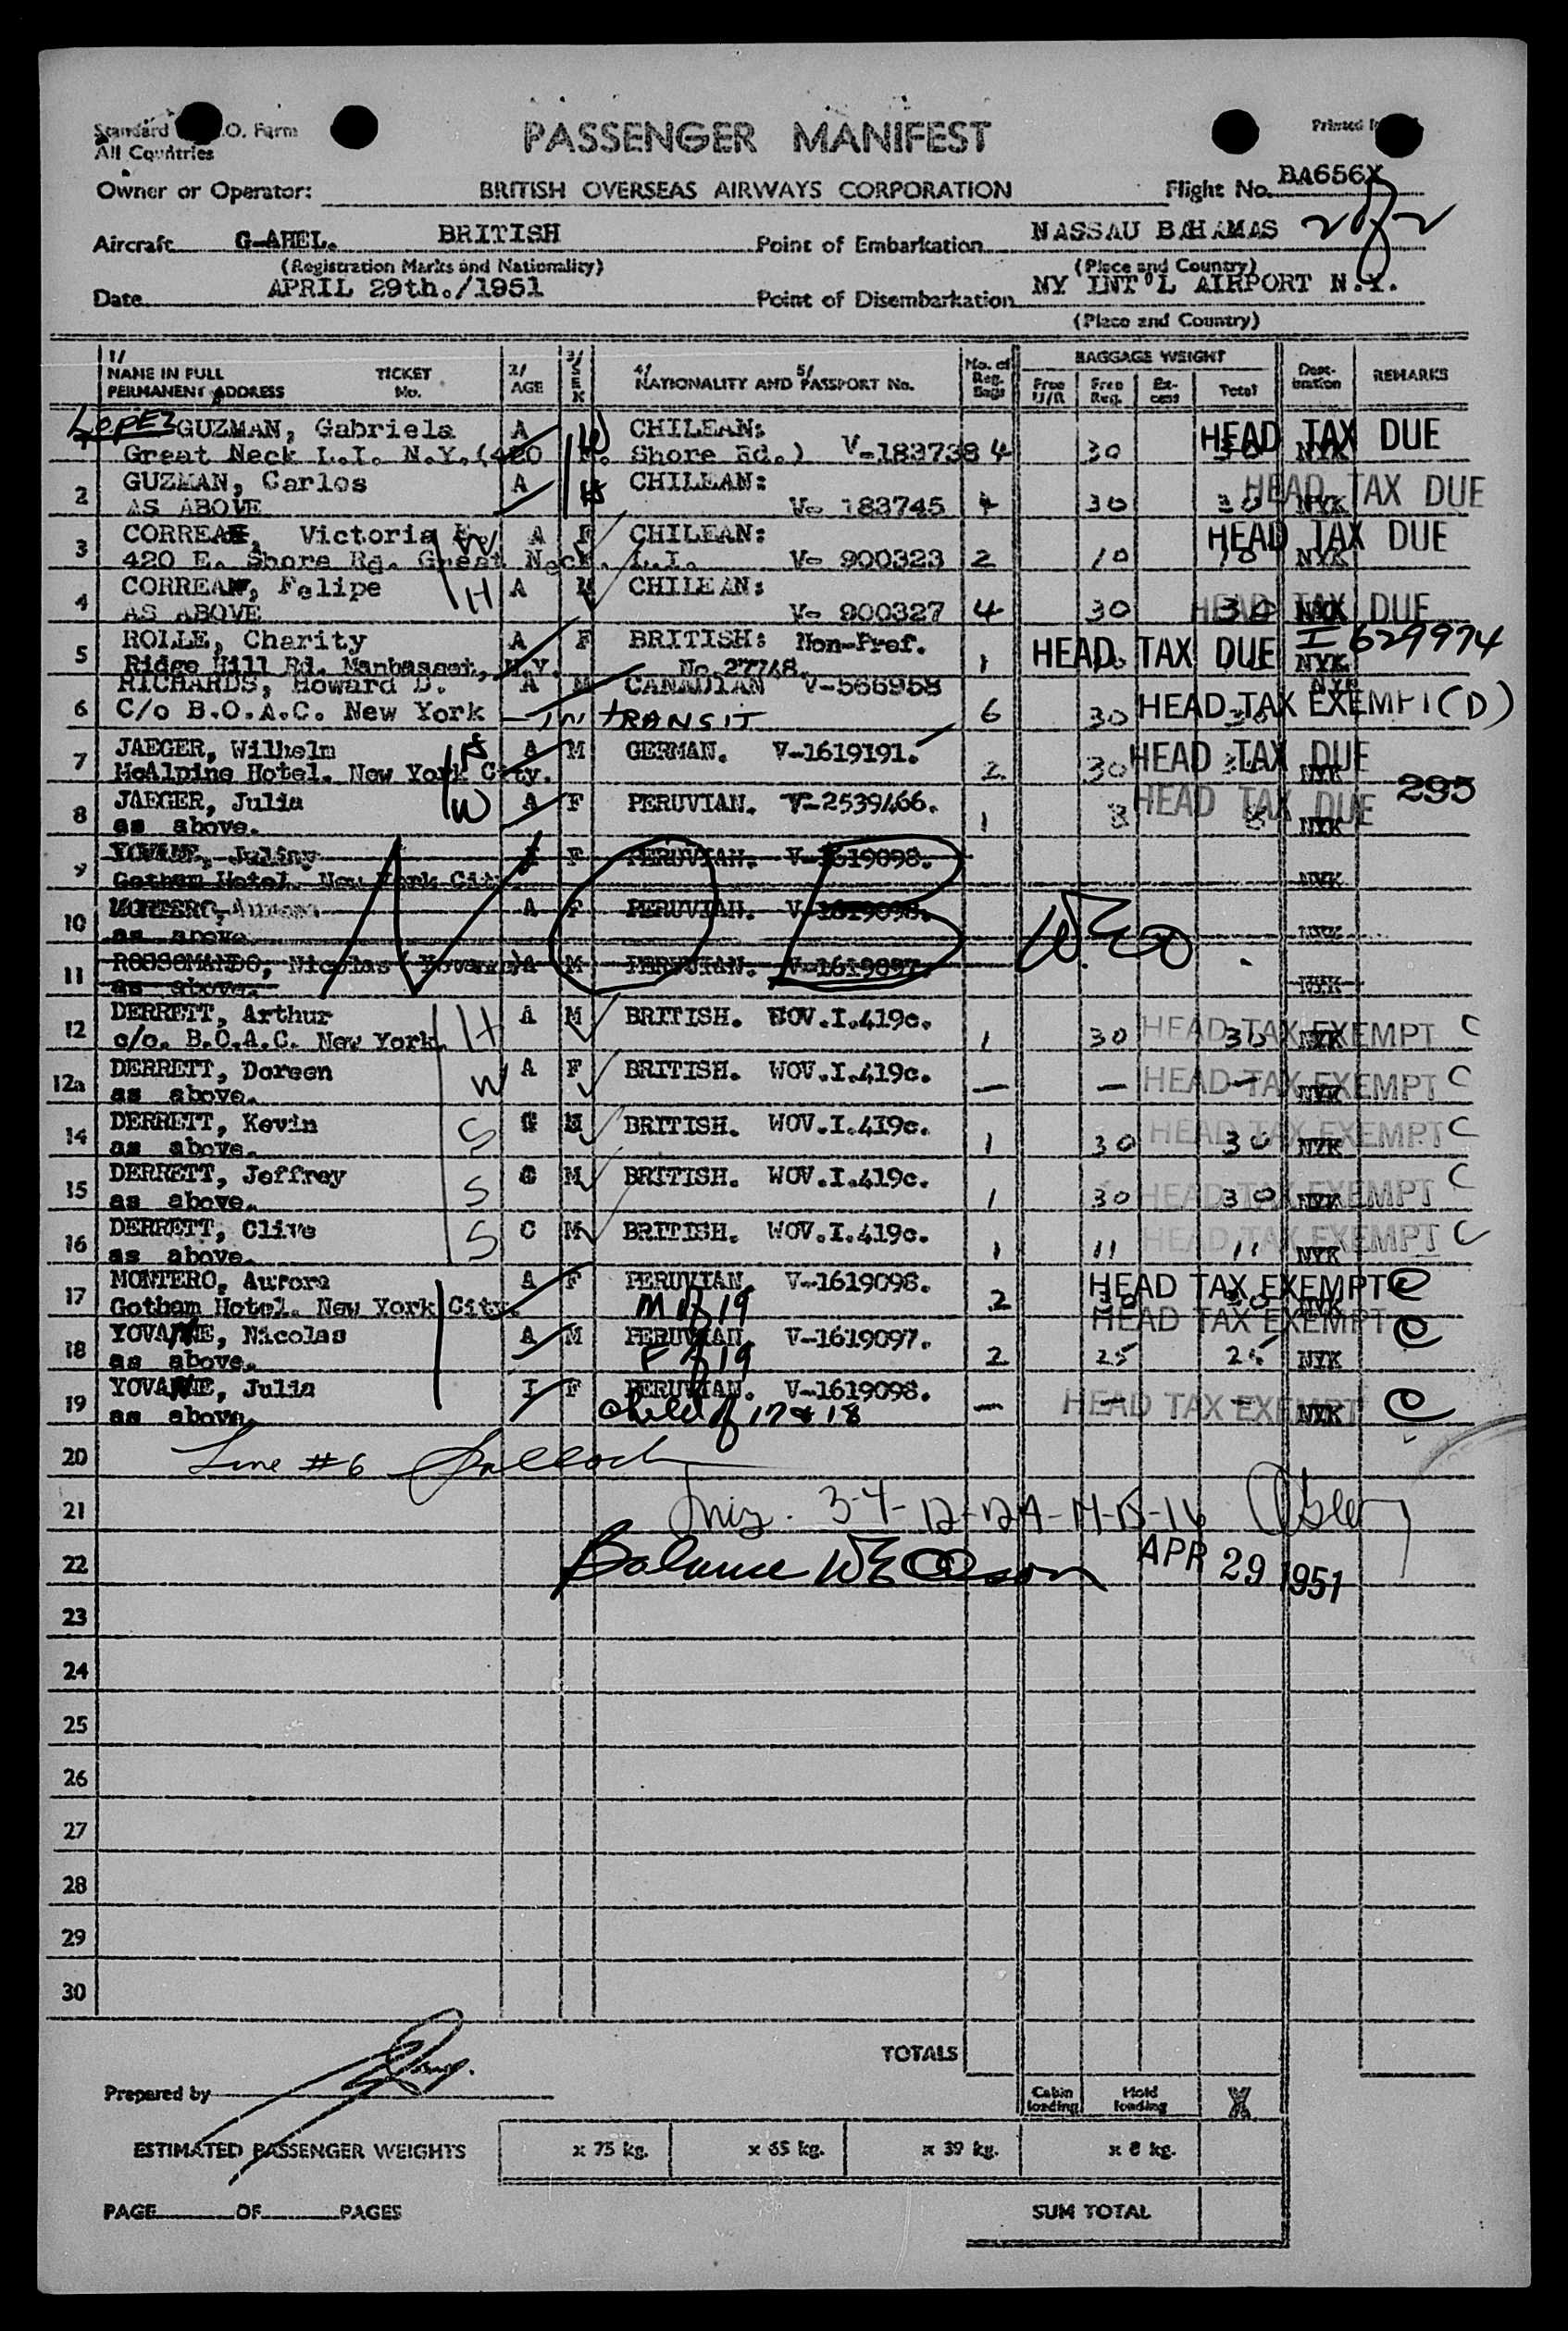 Standard .O. Form
All Countries
PASSENGER MANIFEST
Printed
Owner or Operator: BRITISH OVERSEAS AIRWAYS CORPORATION Flight No. BA656X
Aircraft G-AHEL. BRITISH Point of Embarkation NASSAU BAHAMAS 2 of 2
(Registration Marks and Nationality) (Place and Country)
Date APRIL 29th./1951 Point of Disembarkation NY INT'L AIRPORT N.Y.
(Place and Country)
1/ NAME IN FULL PERMANENT ADDRESS TICKET No. 2/ AGE 3/ SEX 4/ 5/ NATIONALITY AND PASSPORT No. No. of Reg. Bags BAGGAGE WEIGHT Free U/R Free Reg. Excess Total Destination REMARKS
1 Lopez GUZMAN, Gabriela A W CHILEAN: HEAD TAX DUE
Great Neck L.I. N.Y. (420 E. Shore Rd.) V-183738 4 30 30 NYK
2 GUZMAN, Carlos A H CHILEAN: HEAD TAX DUE
AS ABOVE V- 183745 4 30 30 NYK
3 CORREA, Victoria W A F CHILEAN: HEAD TAX DUE
420 E. Shore Rd. Great Neck. L.I. V- 900323 2 10 10 NYK
4 CORREA, Felipe H A M CHILEAN: HEAD TAX DUE
AS ABOVE V- 900327 4 30 30 NYK
5 ROLLE, Charity A F BRITISH: Non-Pref. HEAD TAX DUE I 629974
Ridge Hill Rd. Manhasset, N.Y. No.27748. 1 NYK
6 RICHARDS, Howard D. A M CANADIAN V-566958 NYK
C/o B.O.A.C. New York - in TRANSIT 6 30 30 HEAD TAX EXEMPT (D)
7 JAEGER, Wilhelm H A M GERMAN. V-1619191. HEAD TAX DUE
McAlpine Hotel. New York City. 2 30 NYK
8 JAEGER, Julia W A F PERUVIAN. V-2539466. HEAD TAX DUE 295
as above. 1 8 8 NYK
9 YOVANE, Juliny I F PERUVIAN. V-1619098.
Gotham Hotel. New York City. NYK
10 MONTERO, Aurora A F PERUVIAN. V-1619098.
as above. NYK
11 ROSSOMANDO, Nicolas A M PERUVIAN. V-1619097.
as above. NYK
NOB W.E.O.
12 DERRETT, Arthur H A M BRITISH. WOV.I.419c.
c/o. B.O.A.C. New York. 1 30 30 HEAD TAX EXEMPT NYK C
12a DERRETT, Doreen W A F BRITISH. WOV.I.419c.
as above. — — — HEAD TAX EXEMPT NYK C
14 DERRETT, Kevin S C M BRITISH. WOV.I.419c.
as above. 1 30 30 HEAD TAX EXEMPT NYK C
15 DERRETT, Jeffrey S C M BRITISH. WOV.I.419c.
as above. 1 30 30 HEAD TAX EXEMPT NYK C
16 DERRETT, Clive S C M BRITISH. WOV.I.419c.
as above. 1 11 11 HEAD TAX EXEMPT NYK C
17 MONTERO, Aurora A F PERUVIAN. V-1619098. HEAD TAX EXEMPT C
Gotham Hotel. New York City. M of 19 2 NYK
18 YOVANE, Nicolas A M PERUVIAN. V-1619097. HEAD TAX EXEMPT C
as above. F of 19 2 25 25 NYK
19 YOVANE, Julia I F PERUVIAN. V-1619098.
as above. Child of 17 & 18 — — — HEAD TAX EXEMPT NYK C
20 Line #6
21 3-4-12-12A-14-15-16
22 Balance APR 29 1951
23
24
25
26
27
28
29
30
TOTALS
Prepared by
Cabin loading Hold loading
ESTIMATED PASSENGER WEIGHTS x 75 kg. x 65 kg. x 39 kg. x 8 kg.
PAGE OF PAGES SUM TOTAL